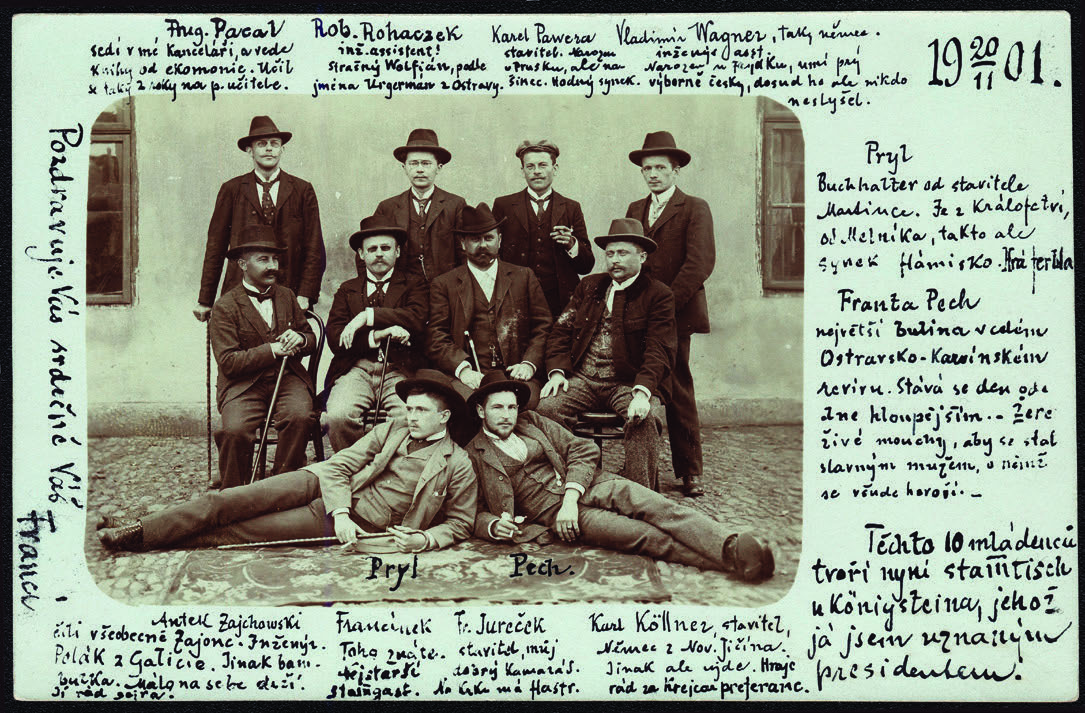 Aug. Pacal
sedí v mé kanceláři, a vede
knihy od ekomonie. Učil
se taky 2 roky na p. učitele.
Rob. Rohaczek
inž. assistent!
Strašný Wolfján, podle
jména Urgerman z Ostravy.
Karel Pawera
stavitel. Narozen
v Prusku, ale na
Šinec. Hodný synek.
Vladimír Wagner, taky němec.
inženýr asst.
Narozen u Frydku, umí prý
výborně česky, dosud ho ale nikdo
neslyšel.
19 20/11 01.
Pozdravuje Vás srdečně Váš
Franci
Pryl
Buchhalter od stavitele
Martince. Je z Království,
od Melníka, takto ale
synek flámisko. Hrá ferbla
Franta Pech
největší Bulina v celém
Ostravsko-Karvínském
reviru. Stává se den ode
dne hloupějším. - Žere
živé mouchy, aby se stal
slavným mužem, o němž
se všude hovoří. -
Těchto 10 mládenců
tvoří nyní stammtisch
u Königsteina, jehož
já jsem uznaným
presidentem.
Pryl
Pech.
Antek Zajchowski
čili všeobecně Zajonc. Inženýr.
Polák z Galicie. Jinak bam-
bulka. Málo na sebe drží.
Jí rád
Francinek
Toho znáte.
nejstarší
stamgast.
Fr. Jureček
stavitel, můj
dobrý kamarád.
Na krku má flastr.
Karl Köllner, stavitel,
Němec z Nov. Jičína.
Jinak ale ujde. Hraje
rád za krejcar preferanc.